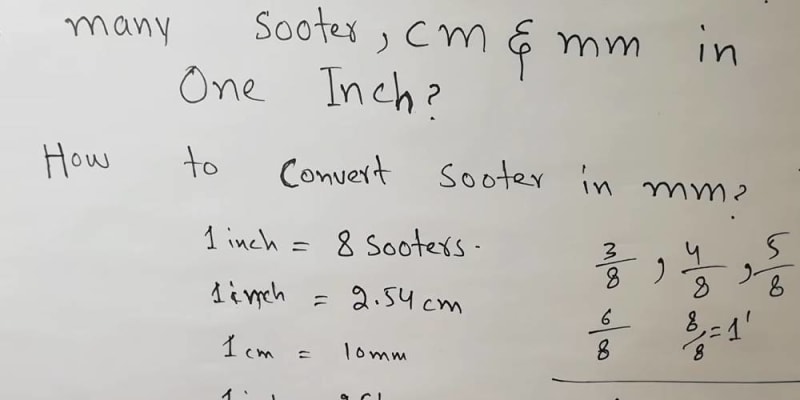 many Sooter, cm & mm in
One Inch?
How to Convert Sooter in mm?
1 inch = 8 Sooters.
1 inch = 2.54 cm
1 cm = 10mm
3/8, 4/8, 5/8
6/8 8/8=1'